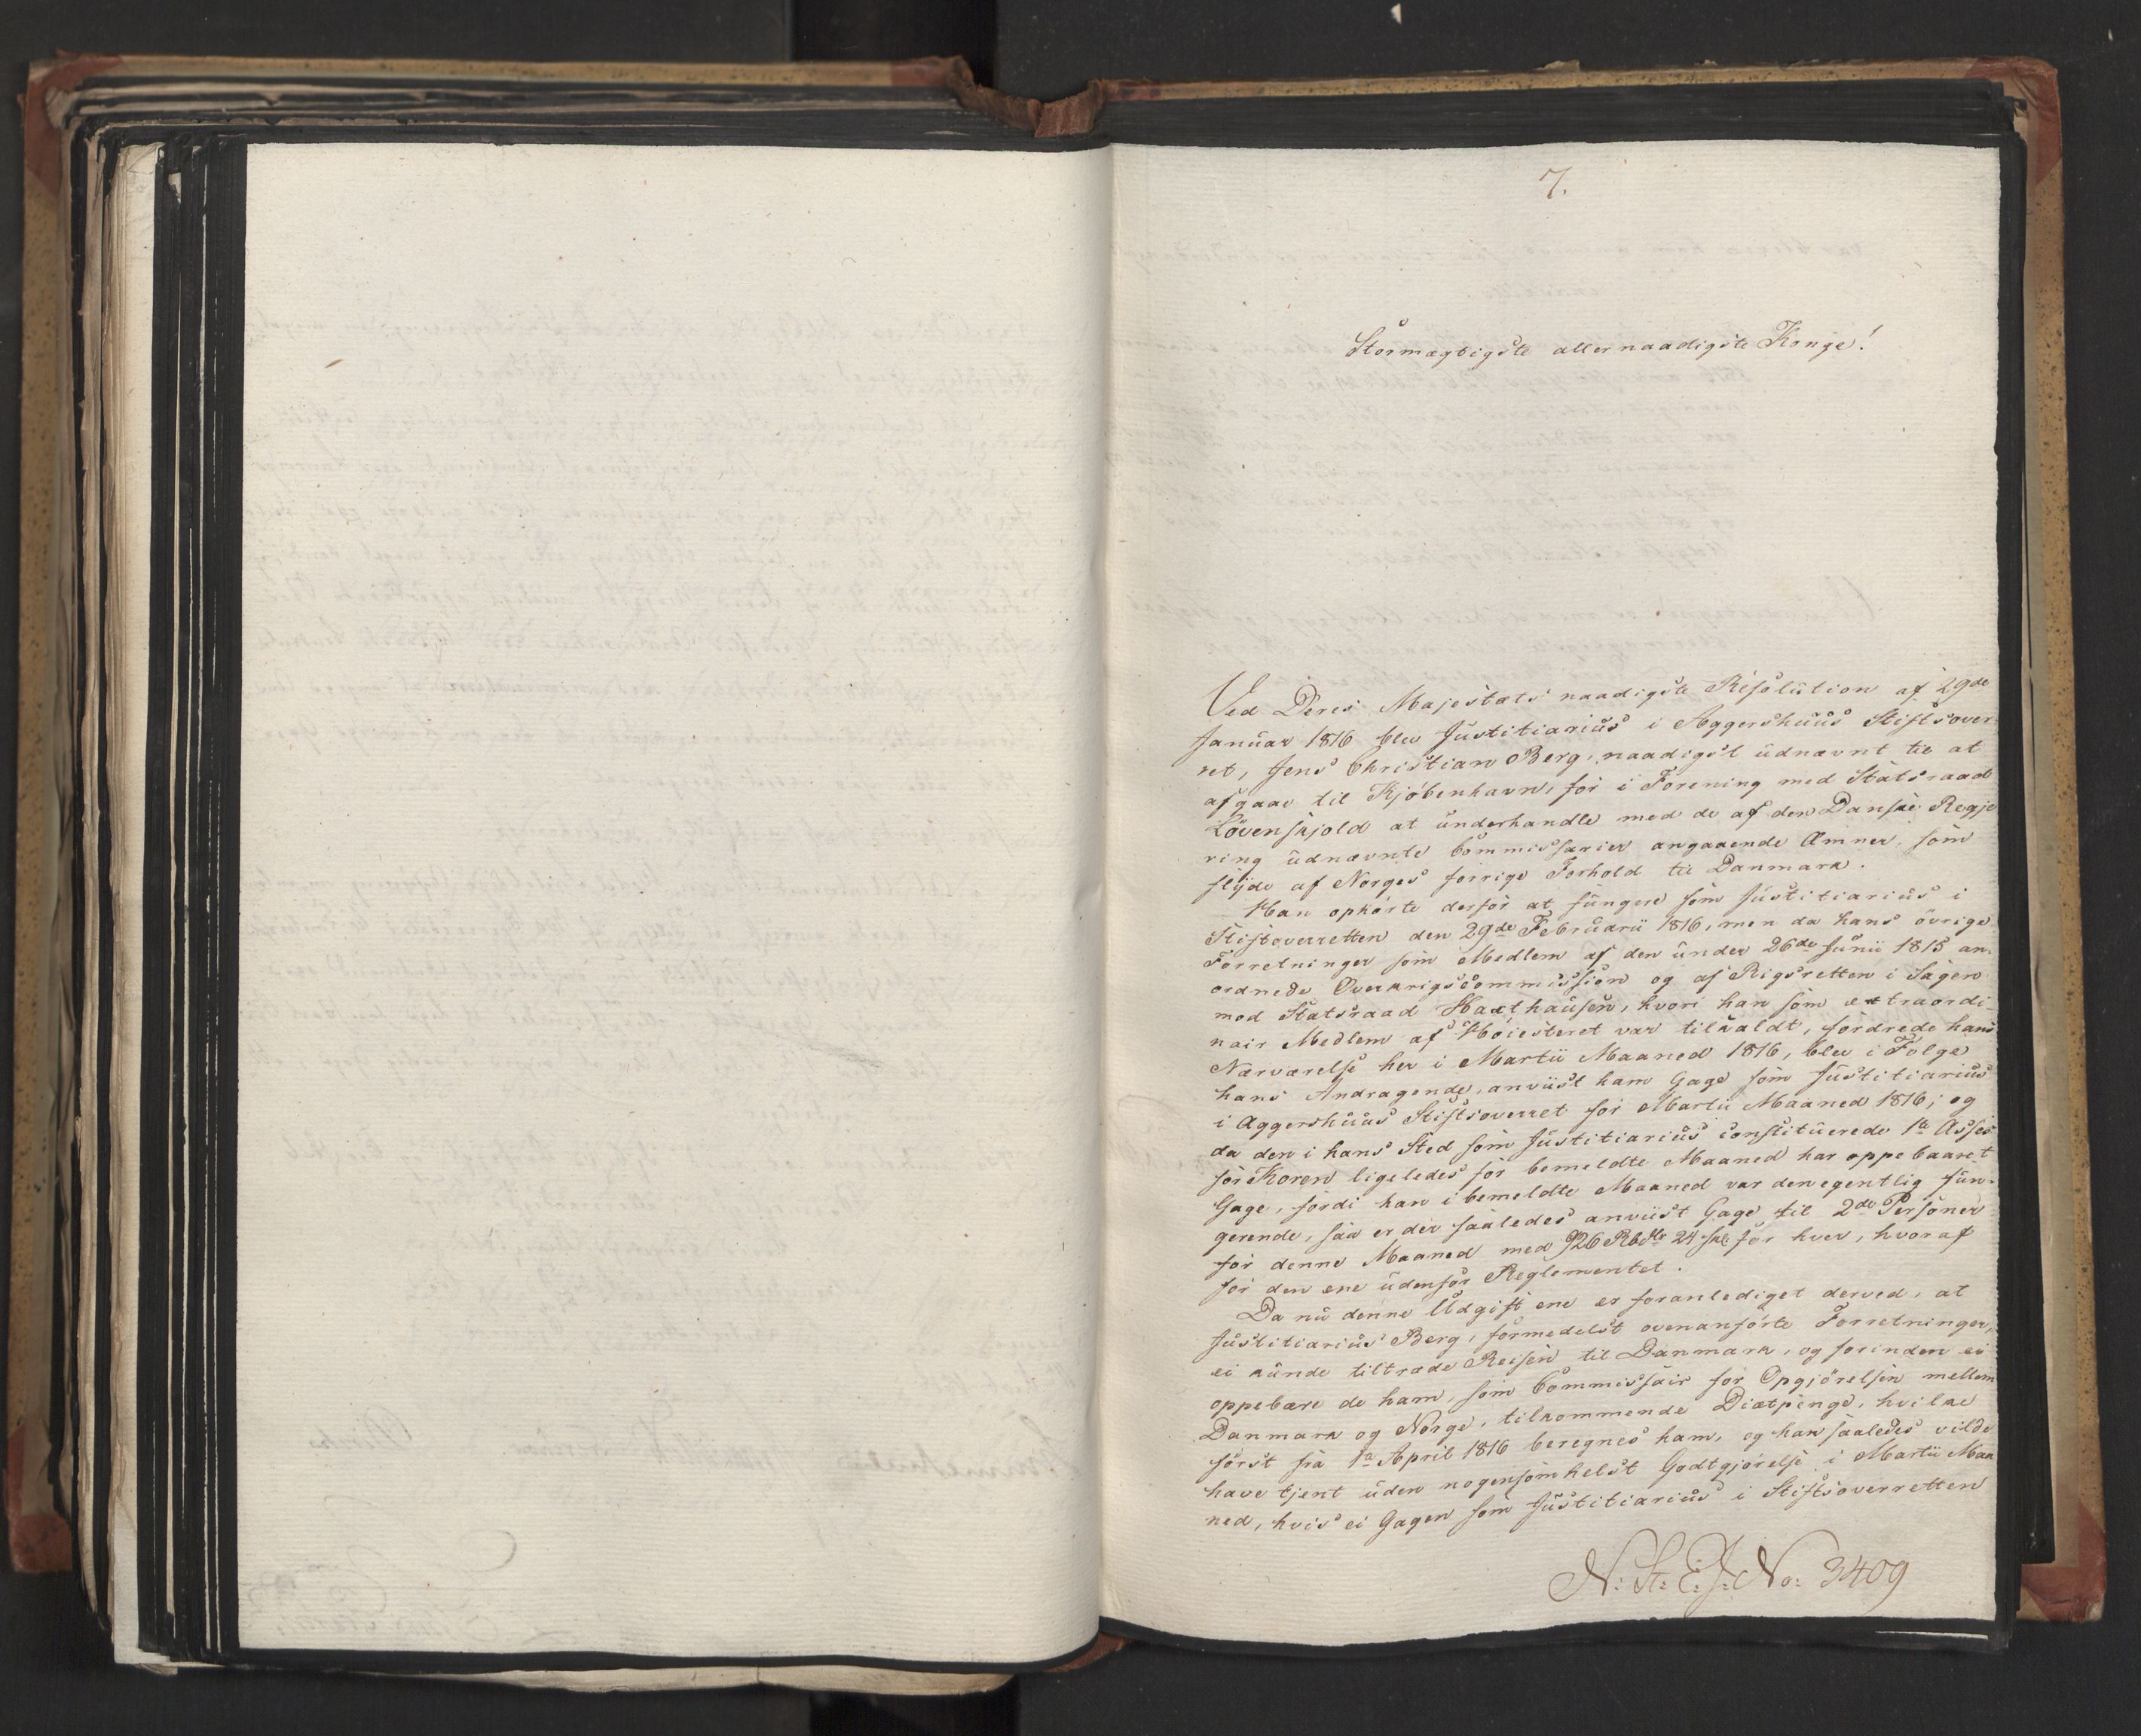 7.
Stormægtigste allernaadigste Konge!
Ved Deres Majestæts naadigste Resolution af 29de
Januar 1816 blev Justitiarius i Aggershuus Stiftsover-
ret, Jens Christian Berg, naadigst udnævnt til at
afgaae til Kjøbenhavn, for i Forening med Statsraad
Løvenskjold at underhandle med de af den Danske Regje
ring udnævnte Commissarier angaaende Æmner, som
flyde af Norges forrige Forhold til Danmark.
Han ophørte derfor at fungere som Justitiarius i
Stiftoverretten den 29de Februarii 1816, men da hans øvrige
Forretninger som Medlem af den under 26de Junii 1815 an-
ordnede Overkrigscommission og af Rigsretten i Sagen
mod Statsraad Haxthausen, hvori han som extraordi-
nair Medlem af Høiesteret var tilkaldt, fordrede hans
Nærværelse her i Martii Maaned 1816, blev i Følge
hans Andragende, anviist ham Gage som Justitiarius
i Aggershuus Stiftsoverret for Martii Maaned 1816; og
da den i hans Sted som Justitiarius constituerede 1te Asses
sor Koren ligeledes for bemeldte Maaned har oppebaaret
Gage, fordi han i bemeldte Maaned var den egentlig fun-
gerende, saa er der saaledes anviist Gage til 2de Personer
for denne Maaned med 926 Rbdlr 24 sk for hver, hvoraf
for den ene udenfor Reglementet.
Da nu denne Udgift ene er foranlediget derved, at
Justitiarius Berg, formedelst ovenanførte Forretninger,
ei kunde tiltræde Reisen til Danmark, og forinden ei
oppebære de ham, som Commissair for Opgjørelsen mellem
Danmark og Norge, tilkommende Diætpenge, hvilke
først fra 1te April 1816 beregnes ham, og han saaledes vilde
have tjent uden nogensomhelst Godtgjørelse i Martii Maa
ned, hvis ei Gagen som Justitiarius i Stiftsoverretten
N: St: E: J: No: 3409